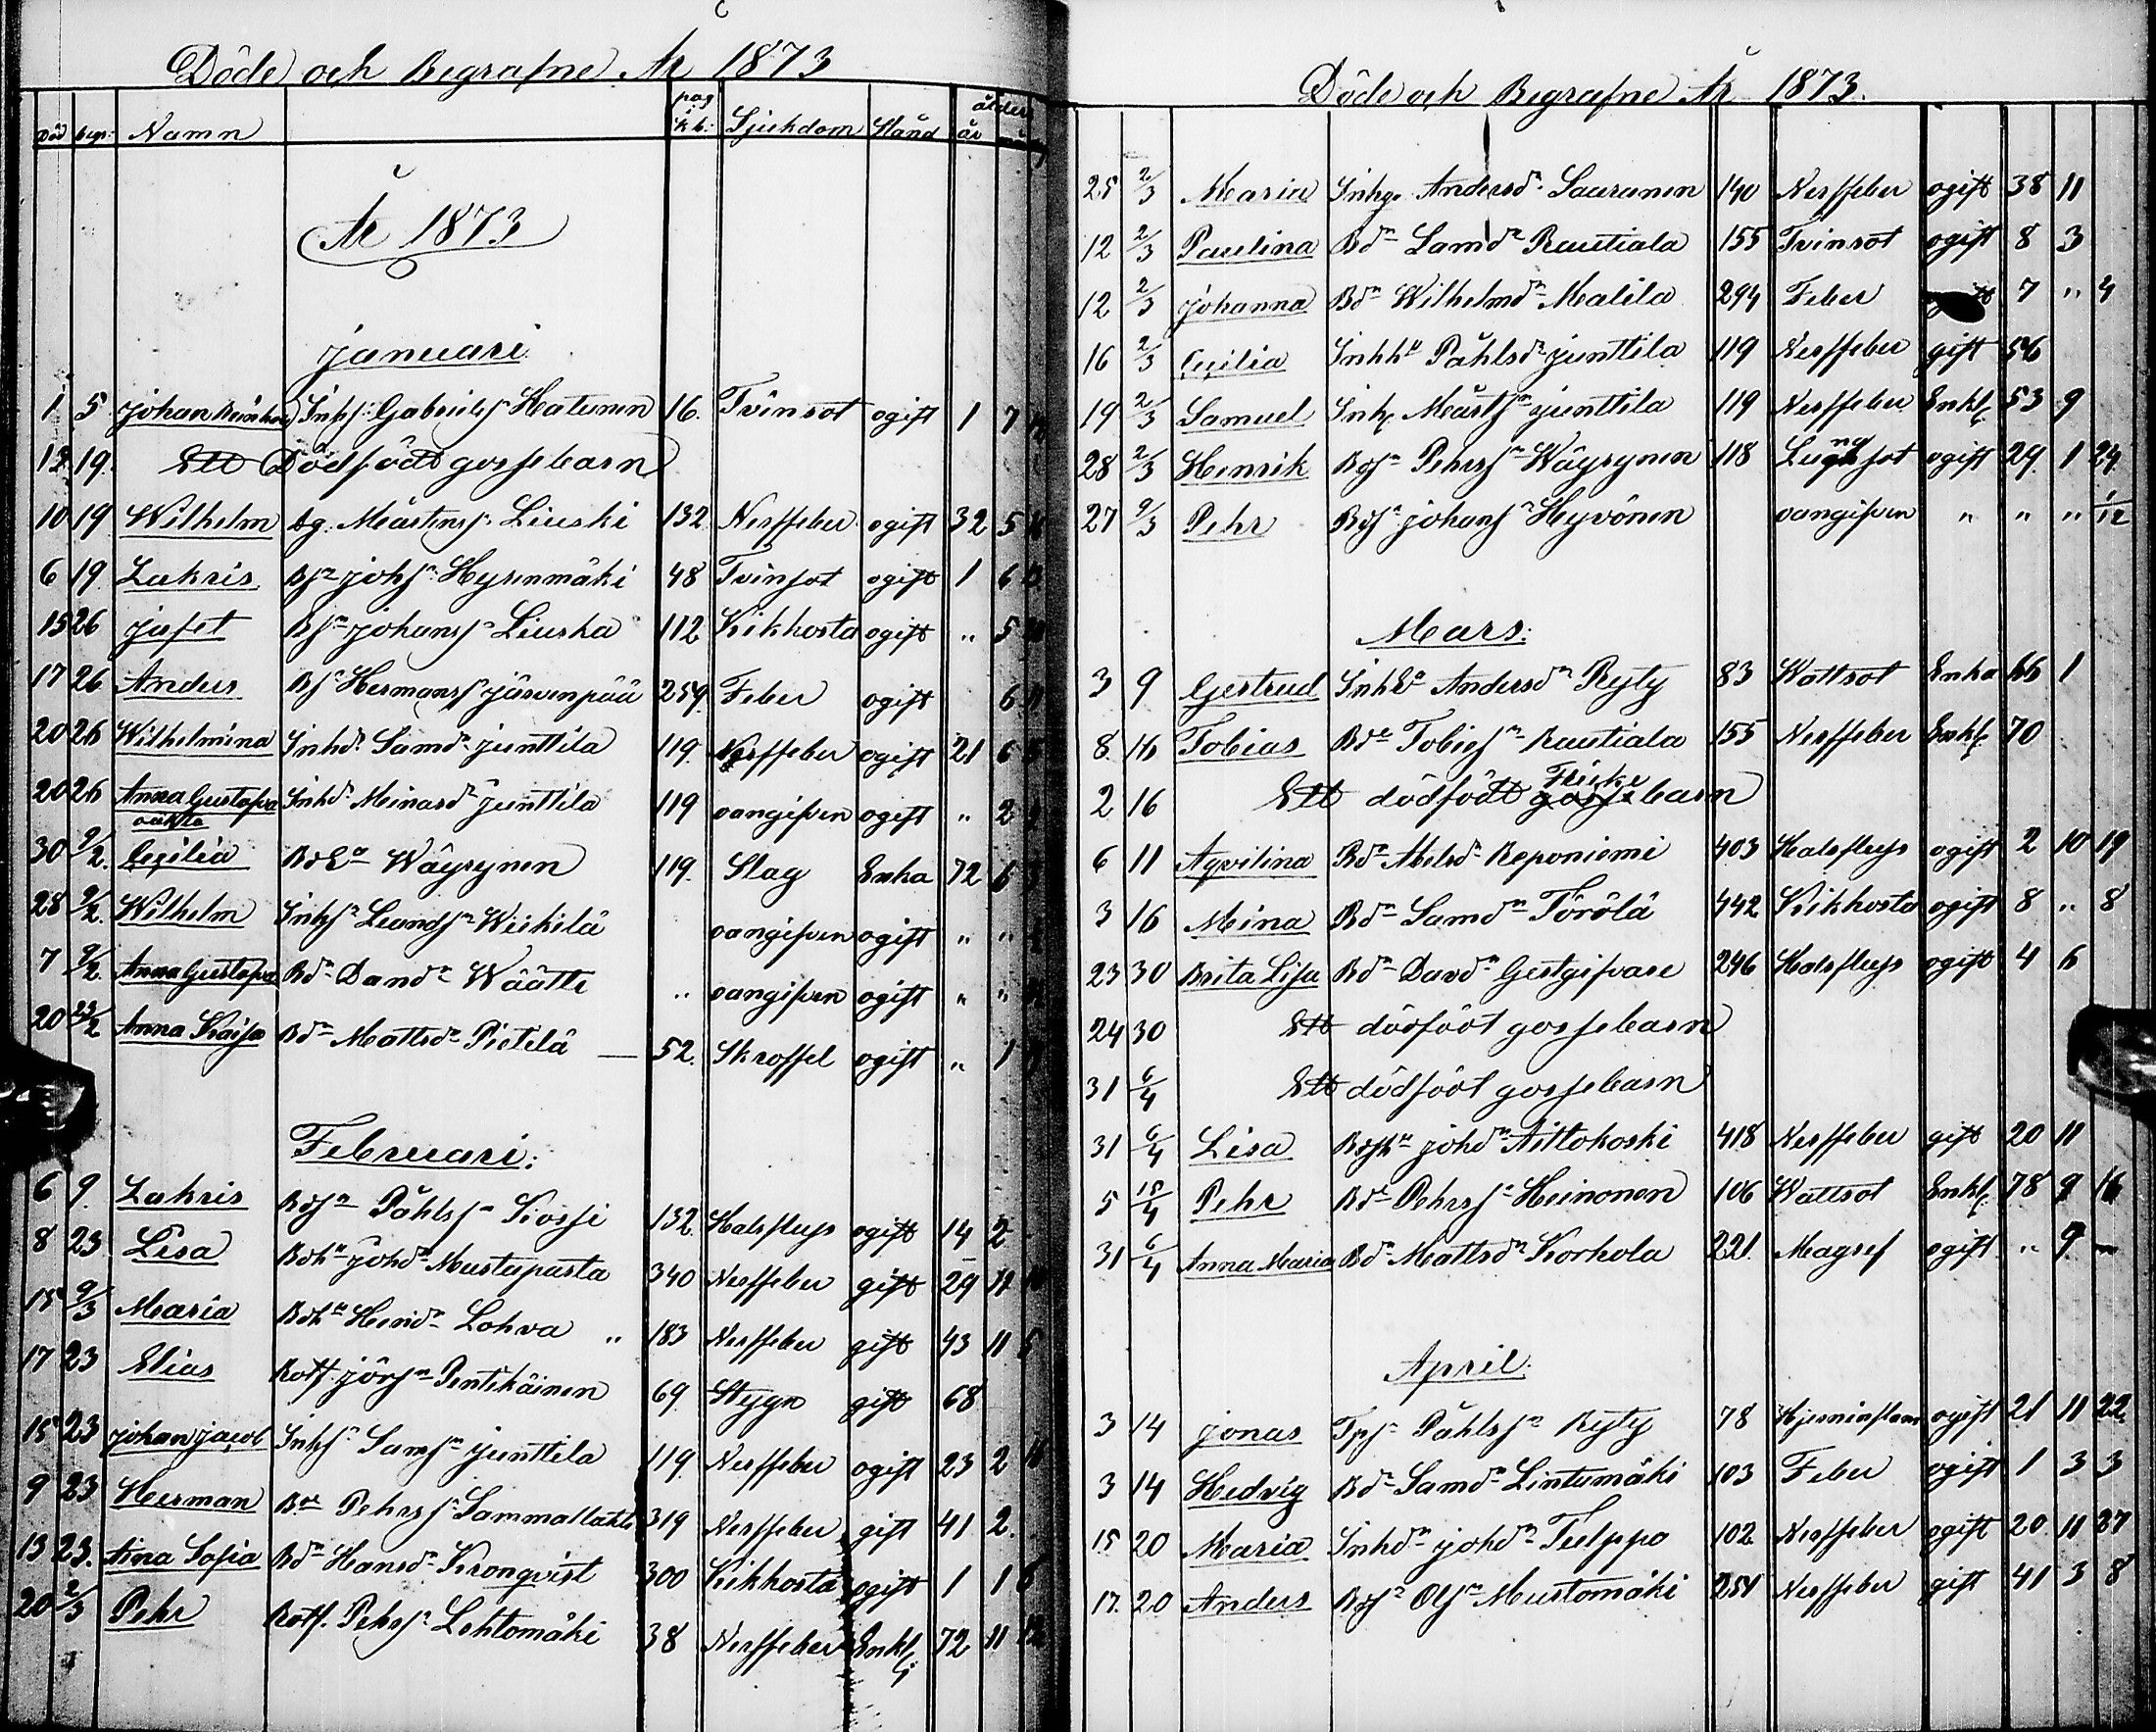 Döde och Begrafne År 1873
Död begr: Namn pag i k b: Sjukdom Stånd ålder år
År 1873
Januari
1 5 Johan Inhs: Gabriels Hatunen 16. Tvinsot ogift 1 7
12 19. Ett Dödfödt gossebarn
10 19 Wilhelm Mårtens: Liuski 132 Nerffeber ogift 32 5
6 19. Zakris Bs Johs: Hyrinmäki 48 Tvinsot ogift 1 6
15 26 Jafet Bs Johanss Liuska 112 Kikhosta ogift " 5
17 26 Anders Bs Hermanss Järvenpää 259. Feber ogift 6
20 26 Wilhelmina Inhd. Samd. Junttila 119. Nerffeber ogift 21 6
20 26 Anna Gustafva oäkta Inhd Meinard Junttila 119 oangifven ogift " 2
30 9/2. Cecilia BdEa Wäyrynen 119. Slag Enka 72 6
28 9/2. Wilhelm Inhs Leands Wiikilä oangifven ogift " "
7 9/2. Anna Gustafva Bdr Dand Wäätti " oangifven ogift " "
20 23/2 Anna Kaisa Bdr Mattsdr Pietilä — 52. Skroffel ogift " 1
Februari:
6 9. Zakris Bdsn Påhlss Kossi 132. Halsflups ogift 14 2
8 23 Lisa Bdha Johdr Mustaparta 340 Nerffeber gift 29 11
15 9/3 Maria Bdha Heindr Lohva " 183 Nerffeber gift 43 11 5
17 23 Elias Rotf. Görss Pentikäinen 69. Stygn gift 68
15 23 Johan Jacob Inhs Sams Junttila 119. Nerffeber ogift 23 2
9 23 Herman Bde Pehrss Sammallahti 319 Nerffeber gift 41 2.
13 23. Aina Sofia Bdr Hansdr Kronqvist 300 Kikhosta ogift 1 1 6
20 2/3 Pehr Rotf. Pehrss Lehtomäki 38 Nerffeber Enkl. 72 11
Döde och Begrafne År 1873.
25 2/3 Maria Inhp. Andersdr Saarunen 140 Nerffeber ogift 38 11
12 2/3 Paulina Bdr Samdr Rautiala 155 Tvinsot ogift 8 3
12 2/3 Johanna Bdr Wilhelmdr Malila 294 Feber 7 " 4
16 2/3 Cecilia Inhha Påhlsdr Junttila 119 Nerffeber gift 56
19 2/3 Samuel Inh Mårtss Junttila 119 Nerffeber Enkl. 53 9
28 2/3 Henrik Bdsn Pehrss Wäyrynen 118 Lungsot ogift 29. 1 24
27 9/3 Pehr Bdsn Johanss Hyvönen oangifven " " " 1/12
Mars:
3 9 Gertrud InhEa Andersdr Ryty 83 Wattsot Enka 66 1
8. 16 Tobias Bde Tobiess Rautiala 155 Nerffeber Enkl. 70
2 16 Ett dödfödt Flicke barn
6 11 Aqvilina Bdr Abelsdr Reponiemi 403 Halsflups ogift 2 10 19
3 16 Mina Bdr Samdr Törölä 442 Kikhosta ogift 8 " 8
23 30 Brita Lisa Bdr Davdr Gestgifvare 246 Halsflups ogift 4 6
24 30 Ett dödfödt gossebarn
31 6/4 Ett dödfödt gossebarn
31 6/4 Lisa Bdsha Johdr Aittokoski 418 Nerffeber gift 20 11
5 15/4 Pehr Bde Pehrss Heinonen 106 Wattsot Enkl. 78 9 16
31 6/4 Anna Maria Bdr Mattsdr Korhola 221. Magref ogift " 9 —
April.
3 14 Jonas Tps Påhlss Ryty 78 Hjerninflam ogift 21 11 22
3 14 Hedvig Bdr Samdr Lintumäki 103 Feber ogift 1 3 3
15 20 Maria Inhdr Johdr Tulppo 102 Nerffeber ogift 20. 11 27
17. 20 Anders Bdsn Ols Mustomäki 251 Nerffeber gift 41 3 8